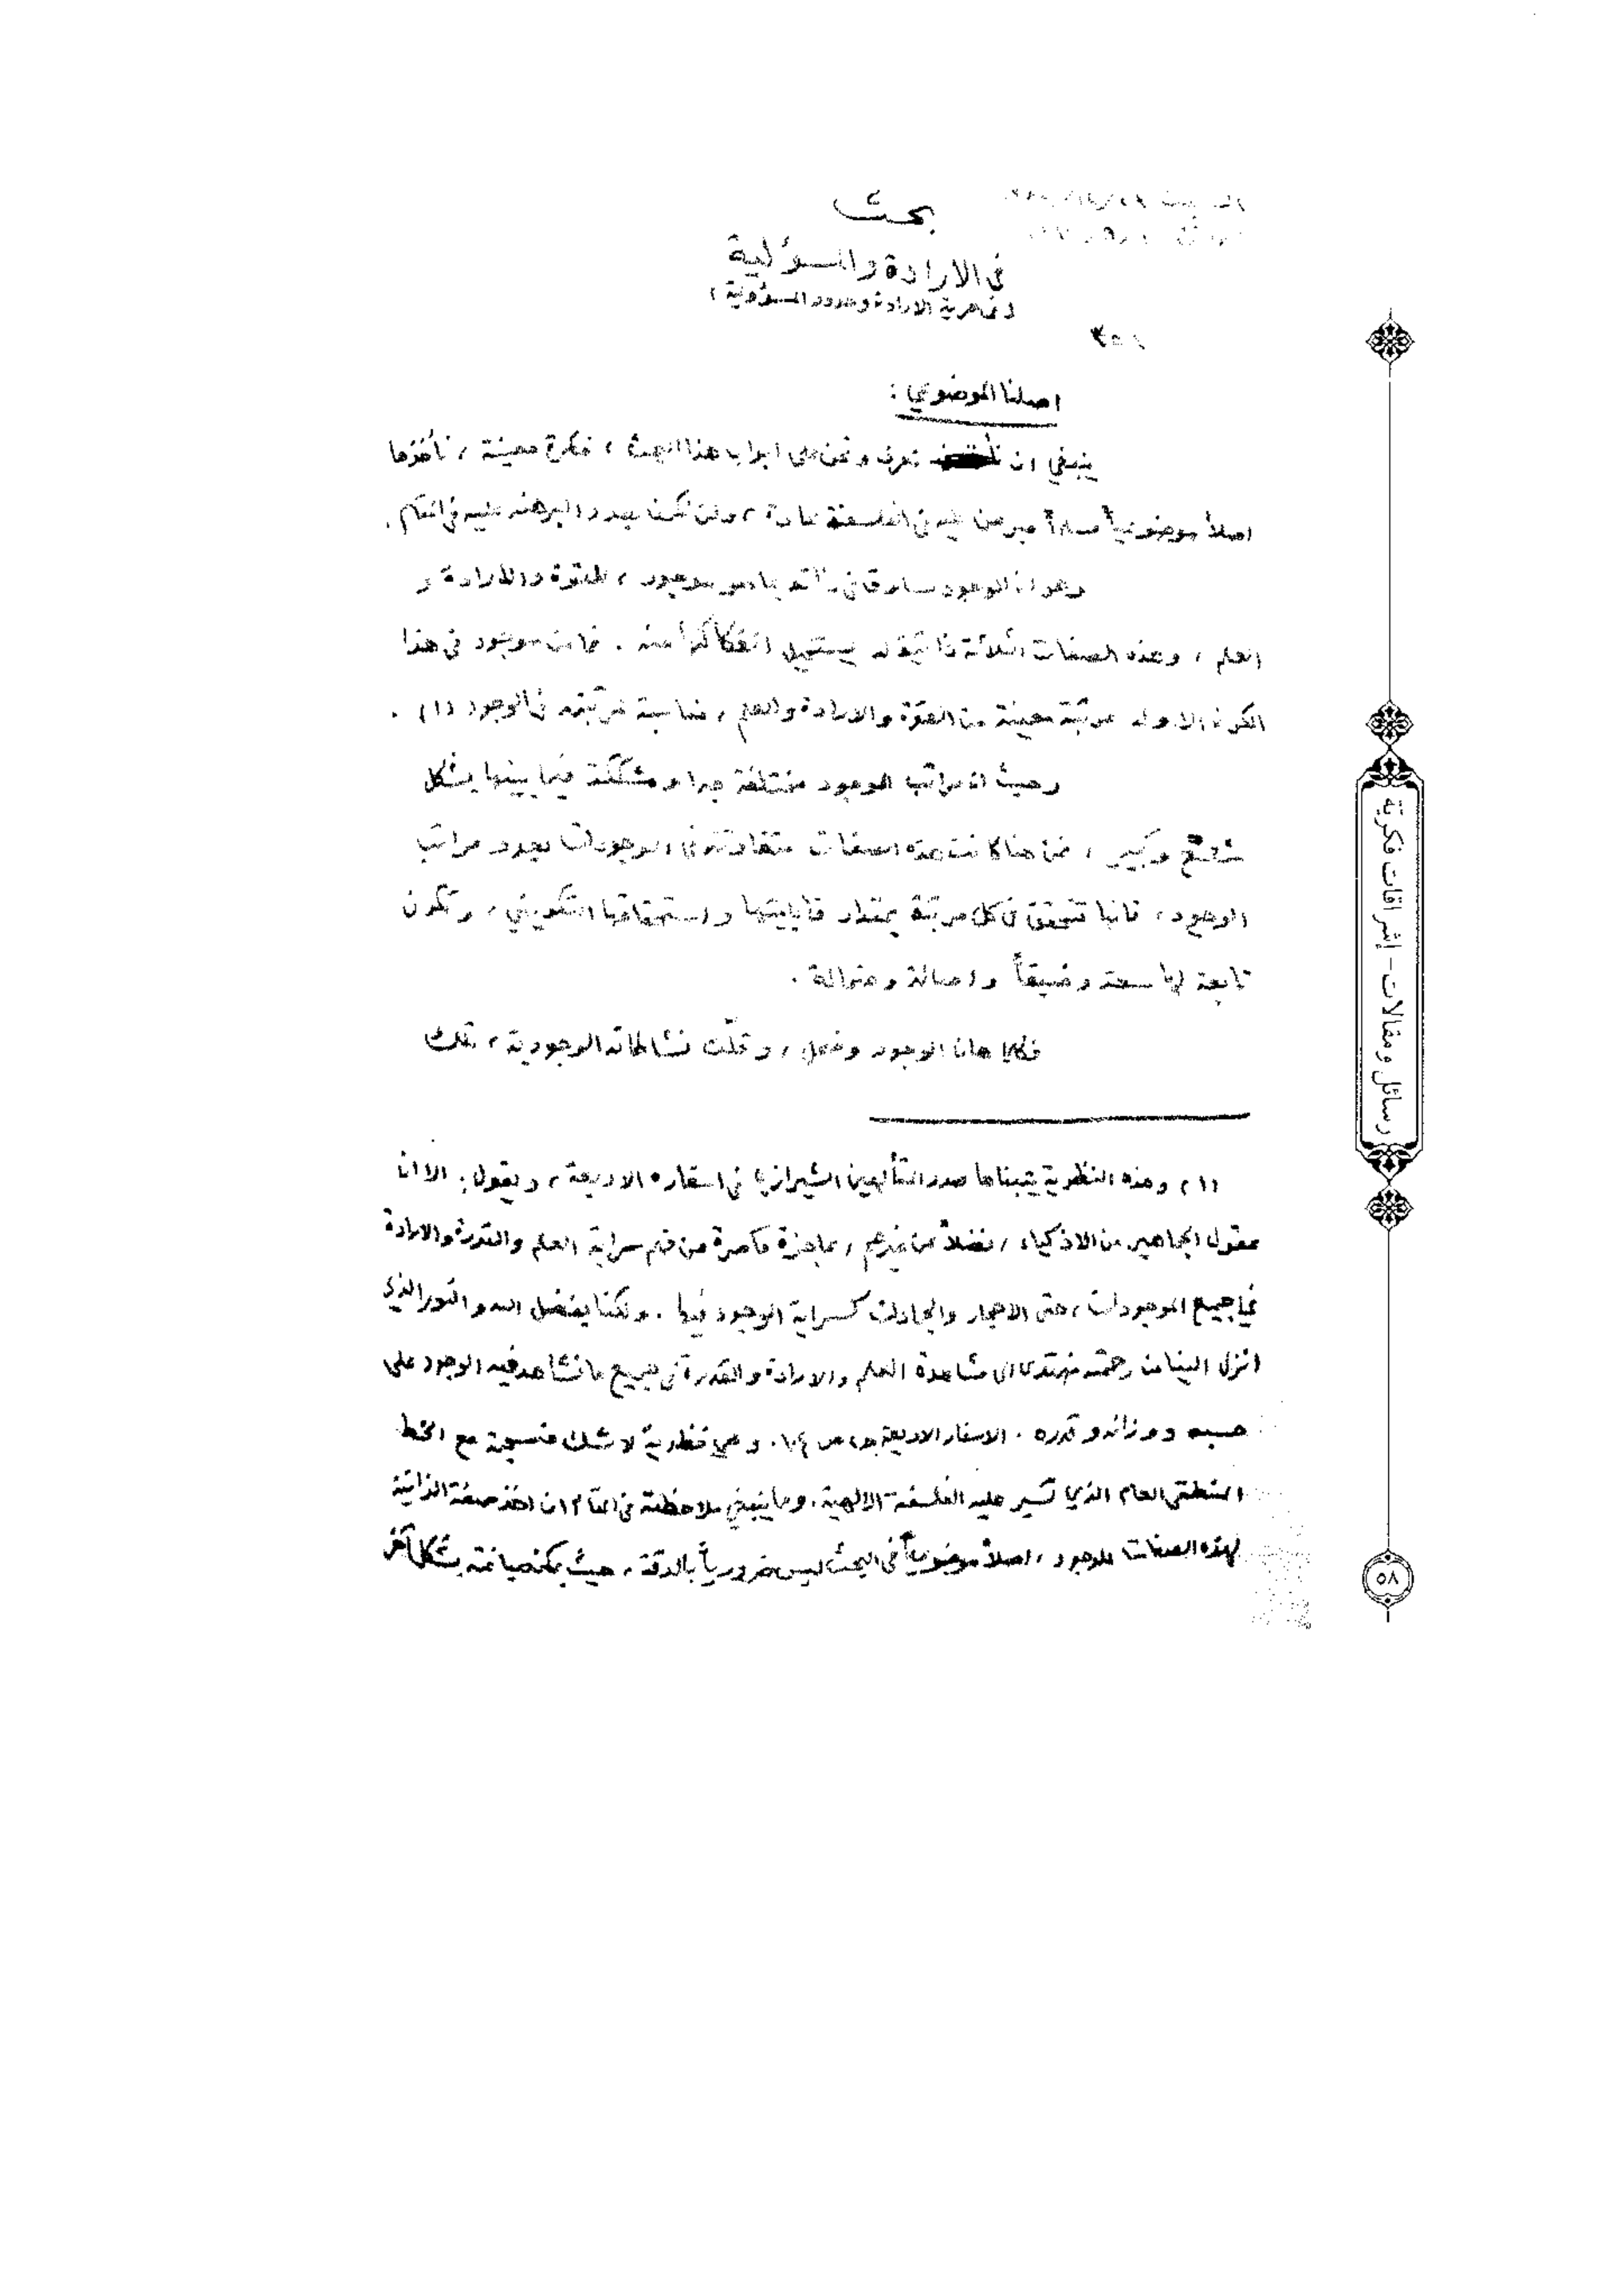 بحث
في الارادة والمسؤلية
( في حرية الارادة وحدود المسؤولية )
اصلنا الموضوعي :
ينبغي ان نعرف ونحن على ابواب هذا البحث ، فكرة معينة ، نأخذها
اصلاً موضوعياً مسلماً مبرهن عليه في الفلسفة عادة ، ولن نكون بصدد البرهنة عليه في المقام .
وهو ان الوجود مساوق في ذاته بما هو موجود ، للقوة والارادة و
العلم ، وهذه الصفات الثلاثة ذاتية له يستحيل انفكاكها منه . فما من موجود في هذا
الكون الا وله مرتبة معينة من القوة والارادة والعلم ، مناسبة لمرتبته في الوجود (١) .
وحيث ان مراتب الوجود مختلفة جدا ومشككة فيما بينها بشكل
وكبير ، فمن هنا كانت هذه الصفات متفاوتة في الوجودات بعدد مراتب
الوجود ، فانها تتحقق في كل مرتبة بمقدار قابليتها واستحقاقها التكويني ، وتكون
تابعة لها سعة وضيقاً واصالة وضحالة .
فكلما هان الوجود وضحل ، وقلّت نشاطاته الوجودية ، تقل
(١) وهذه النظرية يتبناها صدر المتألهين الشيرازي في اسفاره الاربعة ، ويقول : الا ان
عقول الجماهير من الاذكياء ، فضلاً عن غيرهم ، عاجزة قاصرة عن فهم سراية العلم والقدرة والارادة
في جميع الموجودات ، حتى الاحجار والجمادات كسراية الوجود فيها . ولكنا بفضل الله والنور الذي
انزل الينا من رحمته نهتدي الى مشاهدة العلم والارادة والقدرة في جميع ما نشاهد فيه الوجود على
حسبه ووزانه وقدره . الاسفار الاربعة ص . وهي نظرية لا شك منسجمة مع الخط
المنطقي العام الذي تسير عليه الفلسفة الالهية . وما ينبغي ملاحظته في المقام ان اخذ صفة الذاتية
لهذه الصفات للوجود ، اصلاً موضوعياً في البحث ليس ضرورياً بالدقة ، حيث يمكن صيانته بشكل آخر
رسائل ومقالات - إشراقات فكرية
٥٨